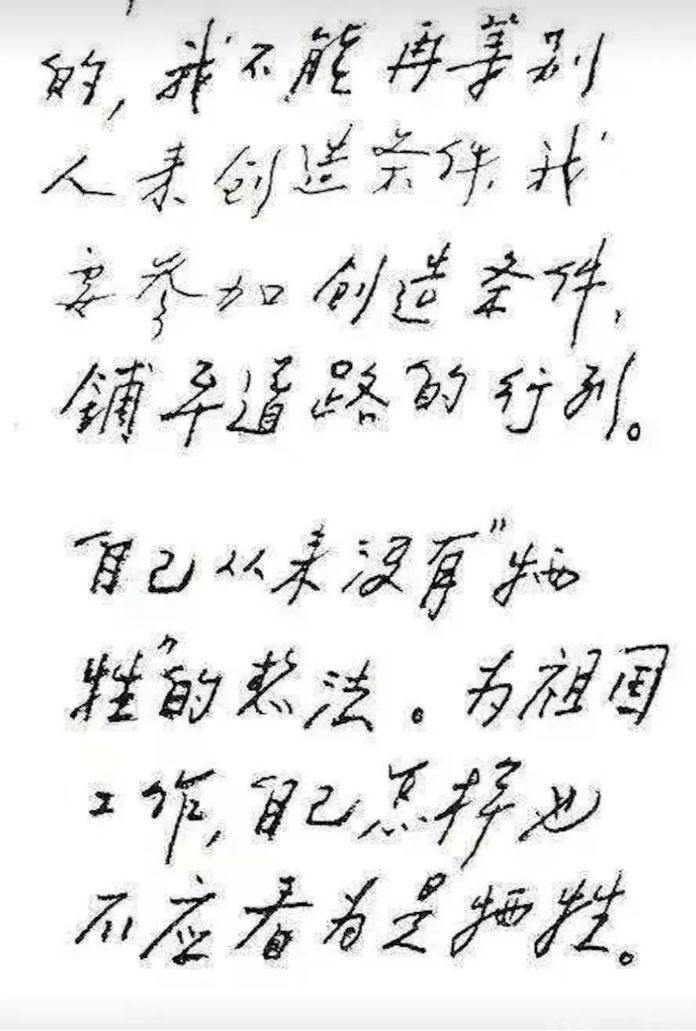 的,我不能再等别
人来创造条件,我
要参加创造条件,
鋪平道路的行列。
自己从来没有"牺
牲"的想法。为祖国
工作,自己怎样也
不应看为是牺牲。